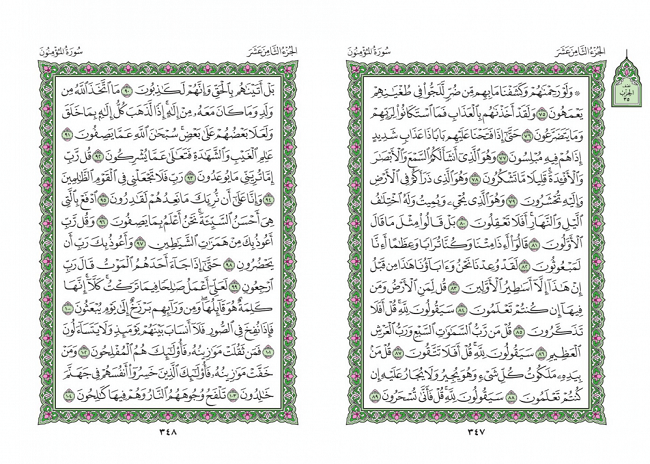 الجزء الثامن عشر
سورة المؤمنون
۞ وَلَوْ رَحِمْنَٰهُمْ وَكَشَفْنَا مَا بِهِم مِّن ضُرٍّ لَّلَجُّوا۟ فِى طُغْيَٰنِهِمْ
يَعْمَهُونَ ٧٥ وَلَقَدْ أَخَذْنَٰهُم بِٱلْعَذَابِ فَمَا ٱسْتَكَانُوا۟ لِرَبِّهِمْ
وَمَا يَتَضَرَّعُونَ ٧٦ حَتَّىٰٓ إِذَا فَتَحْنَا عَلَيْهِم بَابًا ذَا عَذَابٍ شَدِيدٍ
إِذَا هُمْ فِيهِ مُبْلِسُونَ ٧٧ وَهُوَ ٱلَّذِىٓ أَنشَأَ لَكُمُ ٱلسَّمْعَ وَٱلْأَبْصَٰرَ
وَٱلْأَفْـِٔدَةَ قَلِيلًا مَّا تَشْكُرُونَ ٧٨ وَهُوَ ٱلَّذِى ذَرَأَكُمْ فِى ٱلْأَرْضِ
وَإِلَيْهِ تُحْشَرُونَ ٧٩ وَهُوَ ٱلَّذِى يُحْىِۦ وَيُمِيتُ وَلَهُ ٱخْتِلَٰفُ
ٱلَّيْلِ وَٱلنَّهَارِ أَفَلَا تَعْقِلُونَ ٨٠ بَلْ قَالُوا۟ مِثْلَ مَا قَالَ
ٱلْأَوَّلُونَ ٨١ قَالُوٓا۟ أَءِذَا مِتْنَا وَكُنَّا تُرَابًا وَعِظَٰمًا أَءِنَّا
لَمَبْعُوثُونَ ٨٢ لَقَدْ وُعِدْنَا نَحْنُ وَءَابَآؤُنَا هَٰذَا مِن قَبْلُ
إِنْ هَٰذَآ إِلَّآ أَسَٰطِيرُ ٱلْأَوَّلِينَ ٨٣ قُل لِّمَنِ ٱلْأَرْضُ وَمَن
فِيهَآ إِن كُنتُمْ تَعْلَمُونَ ٨٤ سَيَقُولُونَ لِلَّهِ قُلْ أَفَلَا
تَذَكَّرُونَ ٨٥ قُلْ مَن رَّبُّ ٱلسَّمَٰوَٰتِ ٱلسَّبْعِ وَرَبُّ ٱلْعَرْشِ
ٱلْعَظِيمِ ٨٦ سَيَقُولُونَ لِلَّهِ قُلْ أَفَلَا تَتَّقُونَ ٨٧ قُلْ مَنۢ
بِيَدِهِۦ مَلَكُوتُ كُلِّ شَىْءٍ وَهُوَ يُجِيرُ وَلَا يُجَارُ عَلَيْهِ إِن
كُنتُمْ تَعْلَمُونَ ٨٨ سَيَقُولُونَ لِلَّهِ قُلْ فَأَنَّىٰ تُسْحَرُونَ ٨٩
٣٤٧
الجزء الثامن عشر
سورة المؤمنون
بَلْ أَتَيْنَٰهُم بِٱلْحَقِّ وَإِنَّهُمْ لَكَٰذِبُونَ ٩٠ مَا ٱتَّخَذَ ٱللَّهُ مِن
وَلَدٍ وَمَا كَانَ مَعَهُۥ مِنْ إِلَٰهٍ إِذًا لَّذَهَبَ كُلُّ إِلَٰهٍۭ بِمَا خَلَقَ
وَلَعَلَا بَعْضُهُمْ عَلَىٰ بَعْضٍ سُبْحَٰنَ ٱللَّهِ عَمَّا يَصِفُونَ ٩١
عَٰلِمِ ٱلْغَيْبِ وَٱلشَّهَٰدَةِ فَتَعَٰلَىٰ عَمَّا يُشْرِكُونَ ٩٢ قُل رَّبِّ
إِمَّا تُرِيَنِّى مَا يُوعَدُونَ ٩٣ رَبِّ فَلَا تَجْعَلْنِى فِى ٱلْقَوْمِ ٱلظَّٰلِمِينَ
٩٤ وَإِنَّا عَلَىٰٓ أَن نُّرِيَكَ مَا نَعِدُهُمْ لَقَٰدِرُونَ ٩٥ ٱدْفَعْ بِٱلَّتِى
هِىَ أَحْسَنُ ٱلسَّيِّئَةَ نَحْنُ أَعْلَمُ بِمَا يَصِفُونَ ٩٦ وَقُل رَّبِّ
أَعُوذُ بِكَ مِنْ هَمَزَٰتِ ٱلشَّيَٰطِينِ ٩٧ وَأَعُوذُ بِكَ رَبِّ أَن
يَحْضُرُونِ ٩٨ حَتَّىٰٓ إِذَا جَآءَ أَحَدَهُمُ ٱلْمَوْتُ قَالَ رَبِّ
ٱرْجِعُونِ ٩٩ لَعَلِّىٓ أَعْمَلُ صَٰلِحًا فِيمَا تَرَكْتُ كَلَّآ إِنَّهَا
كَلِمَةٌ هُوَ قَآئِلُهَا وَمِن وَرَآئِهِم بَرْزَخٌ إِلَىٰ يَوْمِ يُبْعَثُونَ ١٠٠
فَإِذَا نُفِخَ فِى ٱلصُّورِ فَلَآ أَنسَابَ بَيْنَهُمْ يَوْمَئِذٍ وَلَا يَتَسَآءَلُونَ
١٠١ فَمَن ثَقُلَتْ مَوَٰزِينُهُۥ فَأُو۟لَٰٓئِكَ هُمُ ٱلْمُفْلِحُونَ ١٠٢ وَمَنْ
خَفَّتْ مَوَٰزِينُهُۥ فَأُو۟لَٰٓئِكَ ٱلَّذِينَ خَسِرُوٓا۟ أَنفُسَهُمْ فِى جَهَنَّمَ
خَٰلِدُونَ ١٠٣ تَلْفَحُ وُجُوهَهُمُ ٱلنَّارُ وَهُمْ فِيهَا كَٰلِحُونَ ١٠٤
٣٤٨